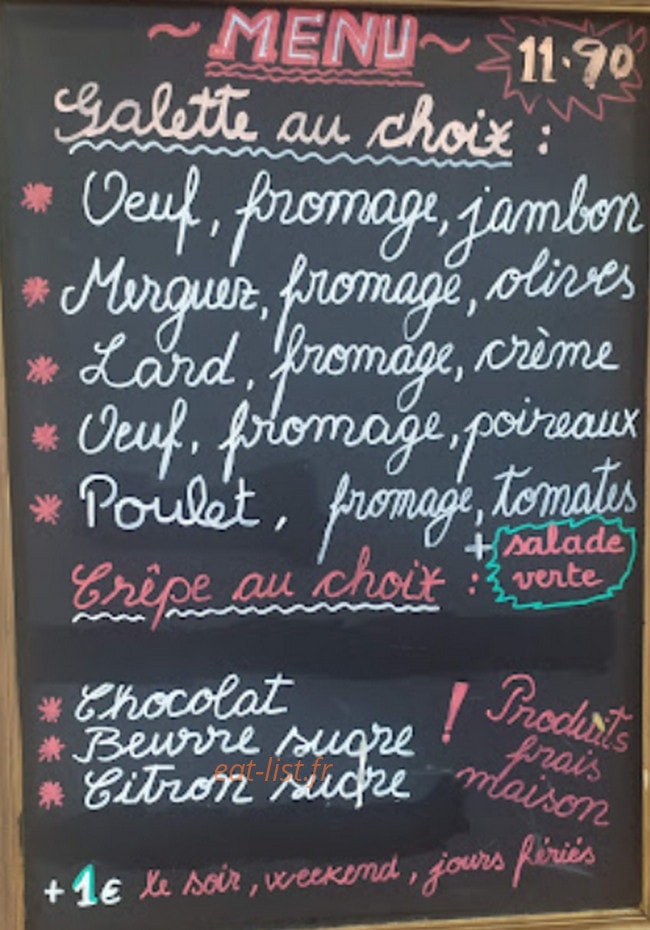 ~ MENU ~ 11.90
Galette au choix :
* Oeuf, fromage, jambon
* Merguez, fromage, olives
* Lard, fromage, crème
* Oeuf, fromage, poireaux
* Poulet, fromage, tomates
+ salade verte
Crêpe au choix :
* Chocolat
* Beurre sucre
* Citron sucre
! Produits
frais
maison
eat-list.fr
+ 1€ le soir, weekend, jours fériés